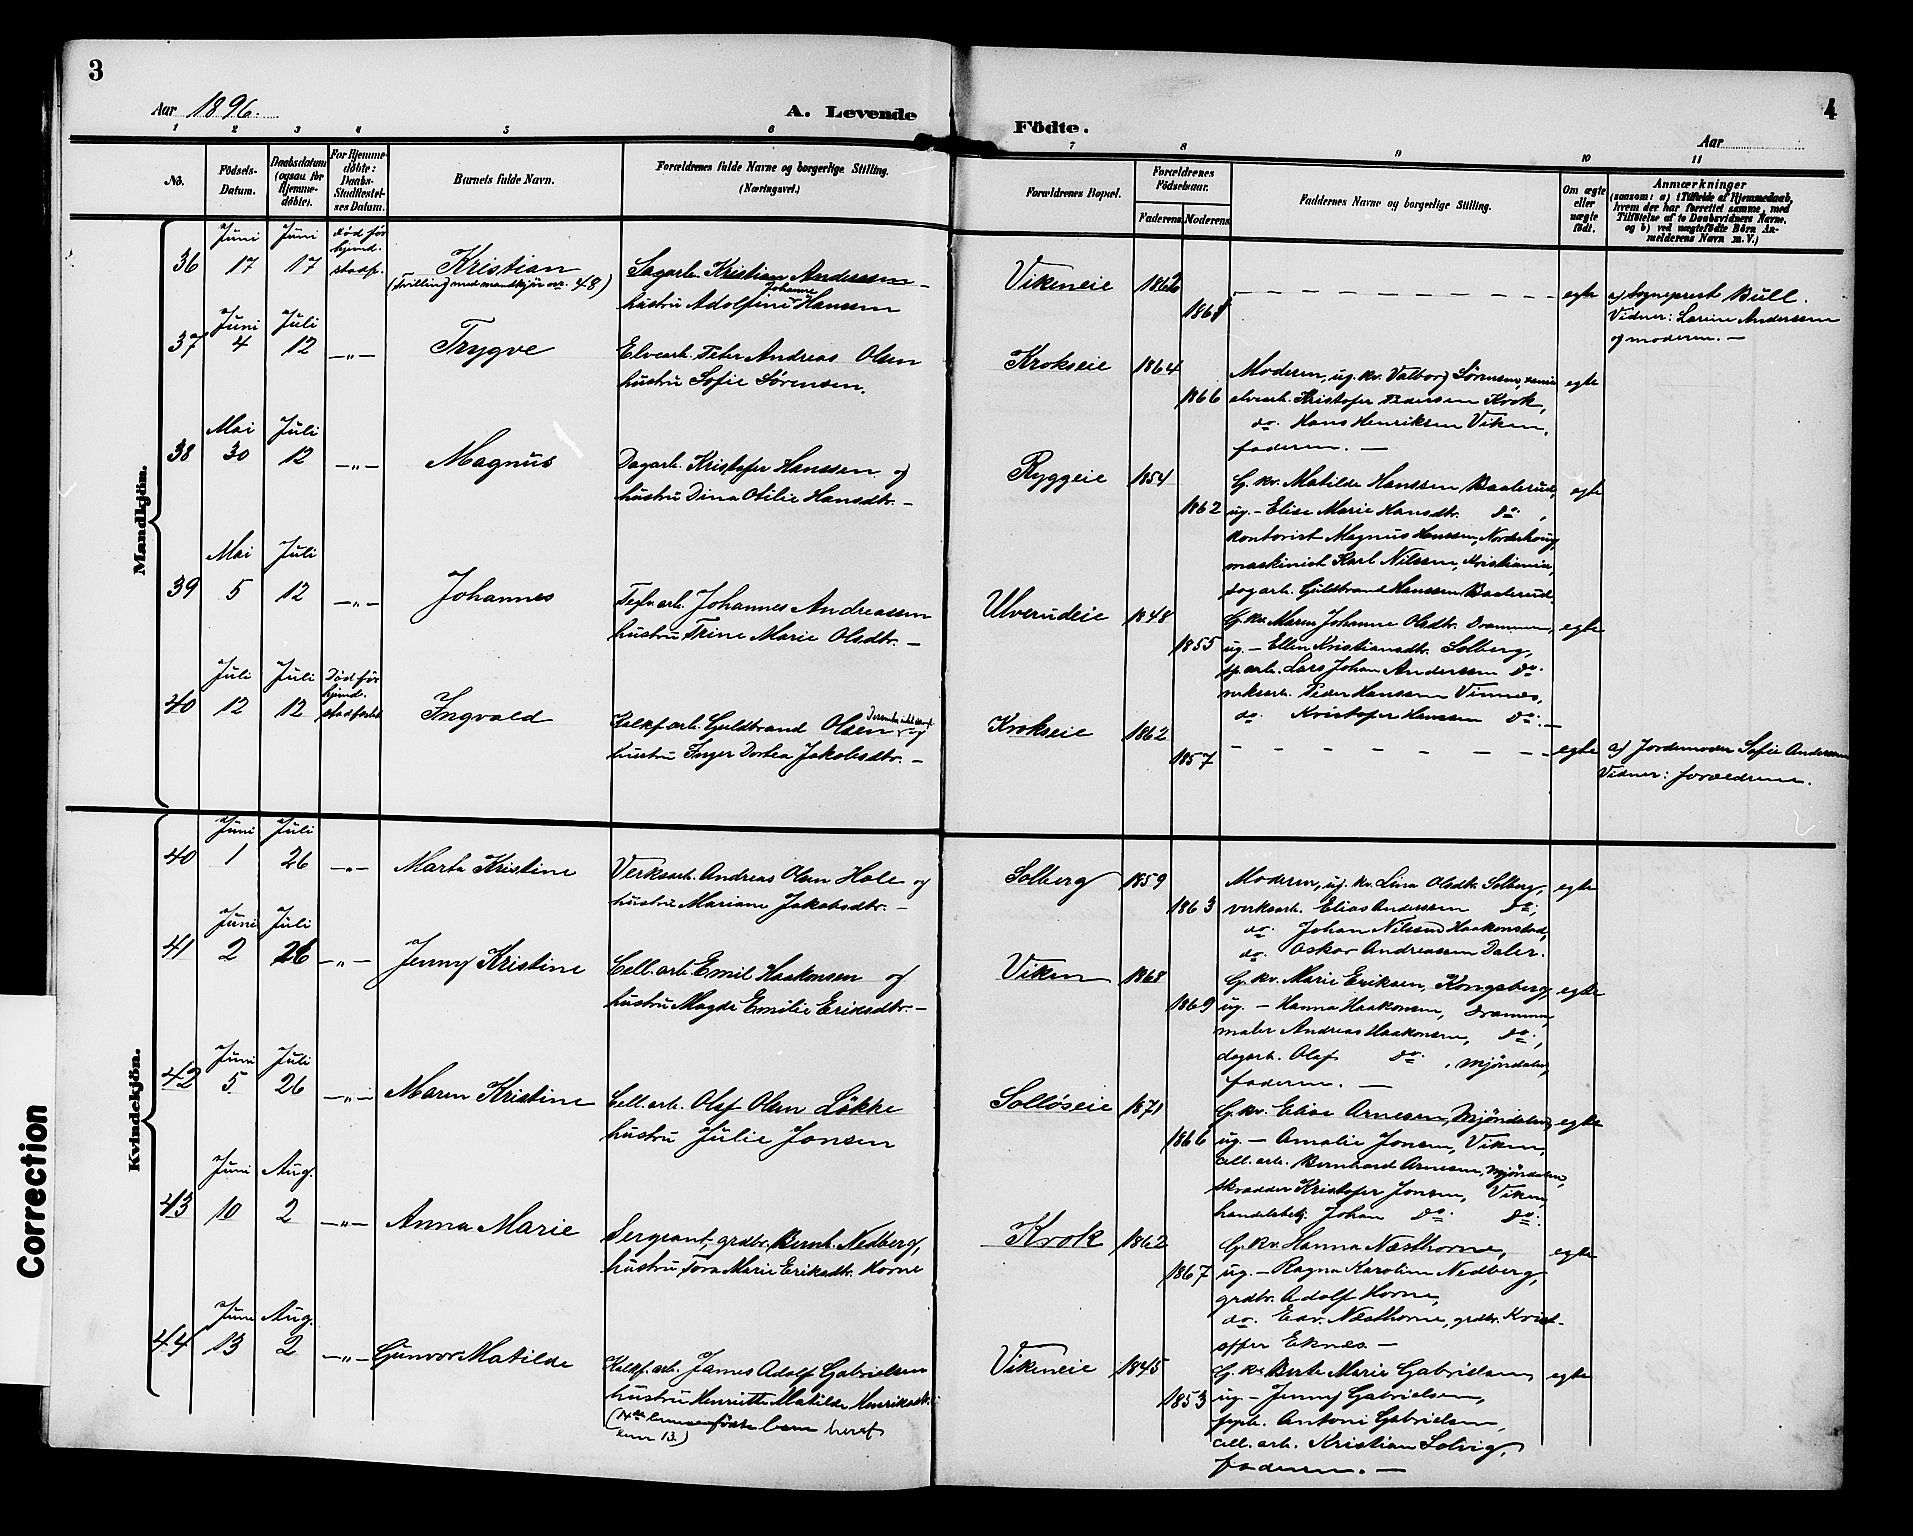 3
Aar 1896.
A. Levende
Födte.
4
Aar
1 2 3 4 5 6 7 8 9 10 11
No.
Födsels-Datum.
Daabsdatum (ogsaa for Hjemme-döbte).
For Hjemme-döbte: Daabs-Stadfæstel-ses Datum.
Barnets fulde Navn.
Forældrenes fulde Navne og borgerlige Stilling. (Næringsvei.)
Forældrenes Bopæl.
Forældrenes Födselsaar.
Faderens Moderens
Faddernes Navne og borgerlige Stilling.
Om ægte eller uægte födt.
Anmærkninger
(saasom: a) i Tilfælde af Hjemmedaab, hvem der har forrettet samme, med Tilföielse af to Daabsvidners Navne, og b) ved uægtefödte Börn An-melderens Navn m. V.)
Mandkjön.
36 Juni 17 Juni 17 død før hjemd. stadf. Kristian
(Trilling med mandkjön no. 48)
Sagarb. Kristian Anderssen
hustru Adolfine Johanne Hanssen
Vikeneie 1862 1861 egte
a) Sogneprest Bull.
Vidner: Larine Anderssen
og moderen. —
37 Juni 4 Juli 12 —"— Trygve
Elvearb. Peter Andreas Olsen
hustru Sofie Sørensen.
Krokseie 1864 1866
Moderen, ug. kv. Valborg Sørensen,
elvearb. Kristofer Pedersen Krok,
do. Hans Henriksen Viken,
faderen. —
egte
38 Mai 30 Juli 12 —"— Magnus
Dagarb. Kristofer Hanssen og
hustru Dina Otilie Hansdtr. —
Ryggeie 1854 1862
G. kv. Matilde Hanssen, Baalerud,
ug. — Elise Marie Hansdtr. do,
kontorist Magnus Hanssen, Norderhoug,
maskinist Karl Nilssen, Kristiania,
dagarb. Guldbrand Hanssen, Baalerud.
egte
39 Mai 5 Juli 12 —"— Johannes
Teglv.arb. Johannes Andreassen
hustru Trine Marie Olsdtr. —
Ulverudeie 1848 1855
G. kv. Maren Johanne Olsdtr. Drammen,
ug. — Ellen Kristiansdtr. Solberg,
sp.arb. Lars Johan Anderssen do.
verksarb. Peder Hanssen Vinnes,
do. Kristofer Hanssen do. —
egte
40 Juli 12 Juli 12 Død før hjemd. stadfestet Ingvald
Kalkf.arb. Guldbrand Olsen og
hustru Inger Dortea Jakobsdtr. —
Krokseie 1862 1857 egte
a) Jordemoder Sofie Anderssen
Vidner: forældrene.
Kvindekjön.
40 Juni 1 Juli 26 —"— Marta Kristine
Verksarb. Andreas Olsen Hole og
hustru Mariane Jakobsdtr. —
Solberg 1859 1863
Moderen, ug. kv. Lina Olsdtr. Solberg,
verksarb. Elias Anderssen do,
do. Johan Nilssen Haakonstad,
do. Oskar Andreassen Daler.
egte
41 Juni 2 Juli 26 —"— Jenny Kristine
Cell.arb. Emil Haakonsen og
hustru Magda Emilie Eriksdtr. —
Viken 1868 1869
G. kv. Marie Eriksen, Kongsberg,
ug. — Hanna Haakonsen, Drammen,
maler Andreas Haakonsen, do,
dagarb. Olaf do., Mjøndalen,
faderen. —
egte
42 Juni 5 Juli 26 —"— Maren Kristine
Cell.arb. Olaf Olsen Løkke
hustru Julie Jonsen
Solløseie 1871 1866
G. kv. Elise Arnesen, Mjøndalen,
ug. — Amalie Jonsen, Viken,
cell. arb. Bernhard Arnesen, Mjøndalen,
skrædder Kristofer Jonsen, Viken,
handelsbetj. Johan do. do.
egte
43 Juni 10 Aug. 2 —"— Anna Marie
Sergeant, grdbr. Bernh. Nedberg,
hustru Tora Marie Eriksdtr. Horne
Krok 1862 1867
G. kv. Hanna Næsthorne,
ug. — Ragna Karoline Nedberg,
grdbr. Adolf Horne,
do. Edv. Næsthorne, grdbr. Krist-
offer Eknes. —
egte
44 Juni 13 Aug. 2 —"— Gunvor Matilde
Kalkf.arb. James Adolf Gabrielsen
hustru Henriette Matilde Henriksdtr.
Vikeneie 1845 1853
G. kv. Berte Marie Gabrielsen,
ug. — Jenny Gabrielsen,
Antoni Gabrielsen,
cell. arb. Kristian Solvig,
faderen. —
egte
Correction